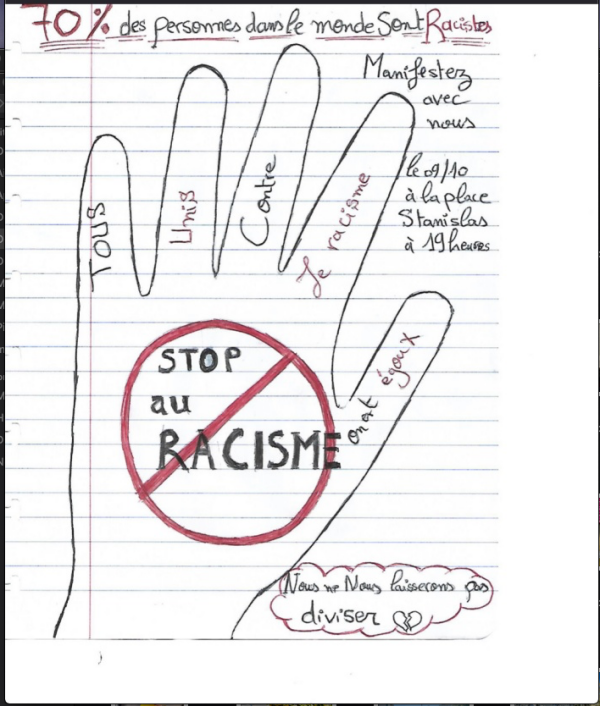 70% des personnes dans le monde Sont Racistes
Manifestez
avec
nous
le 09/10
à la place
Stanislas
à 19 heures
TOUS
Unis
Contre
le racisme
on est égaux
STOP
au
RACISME
Nous ne Nous laisserons pas
diviser